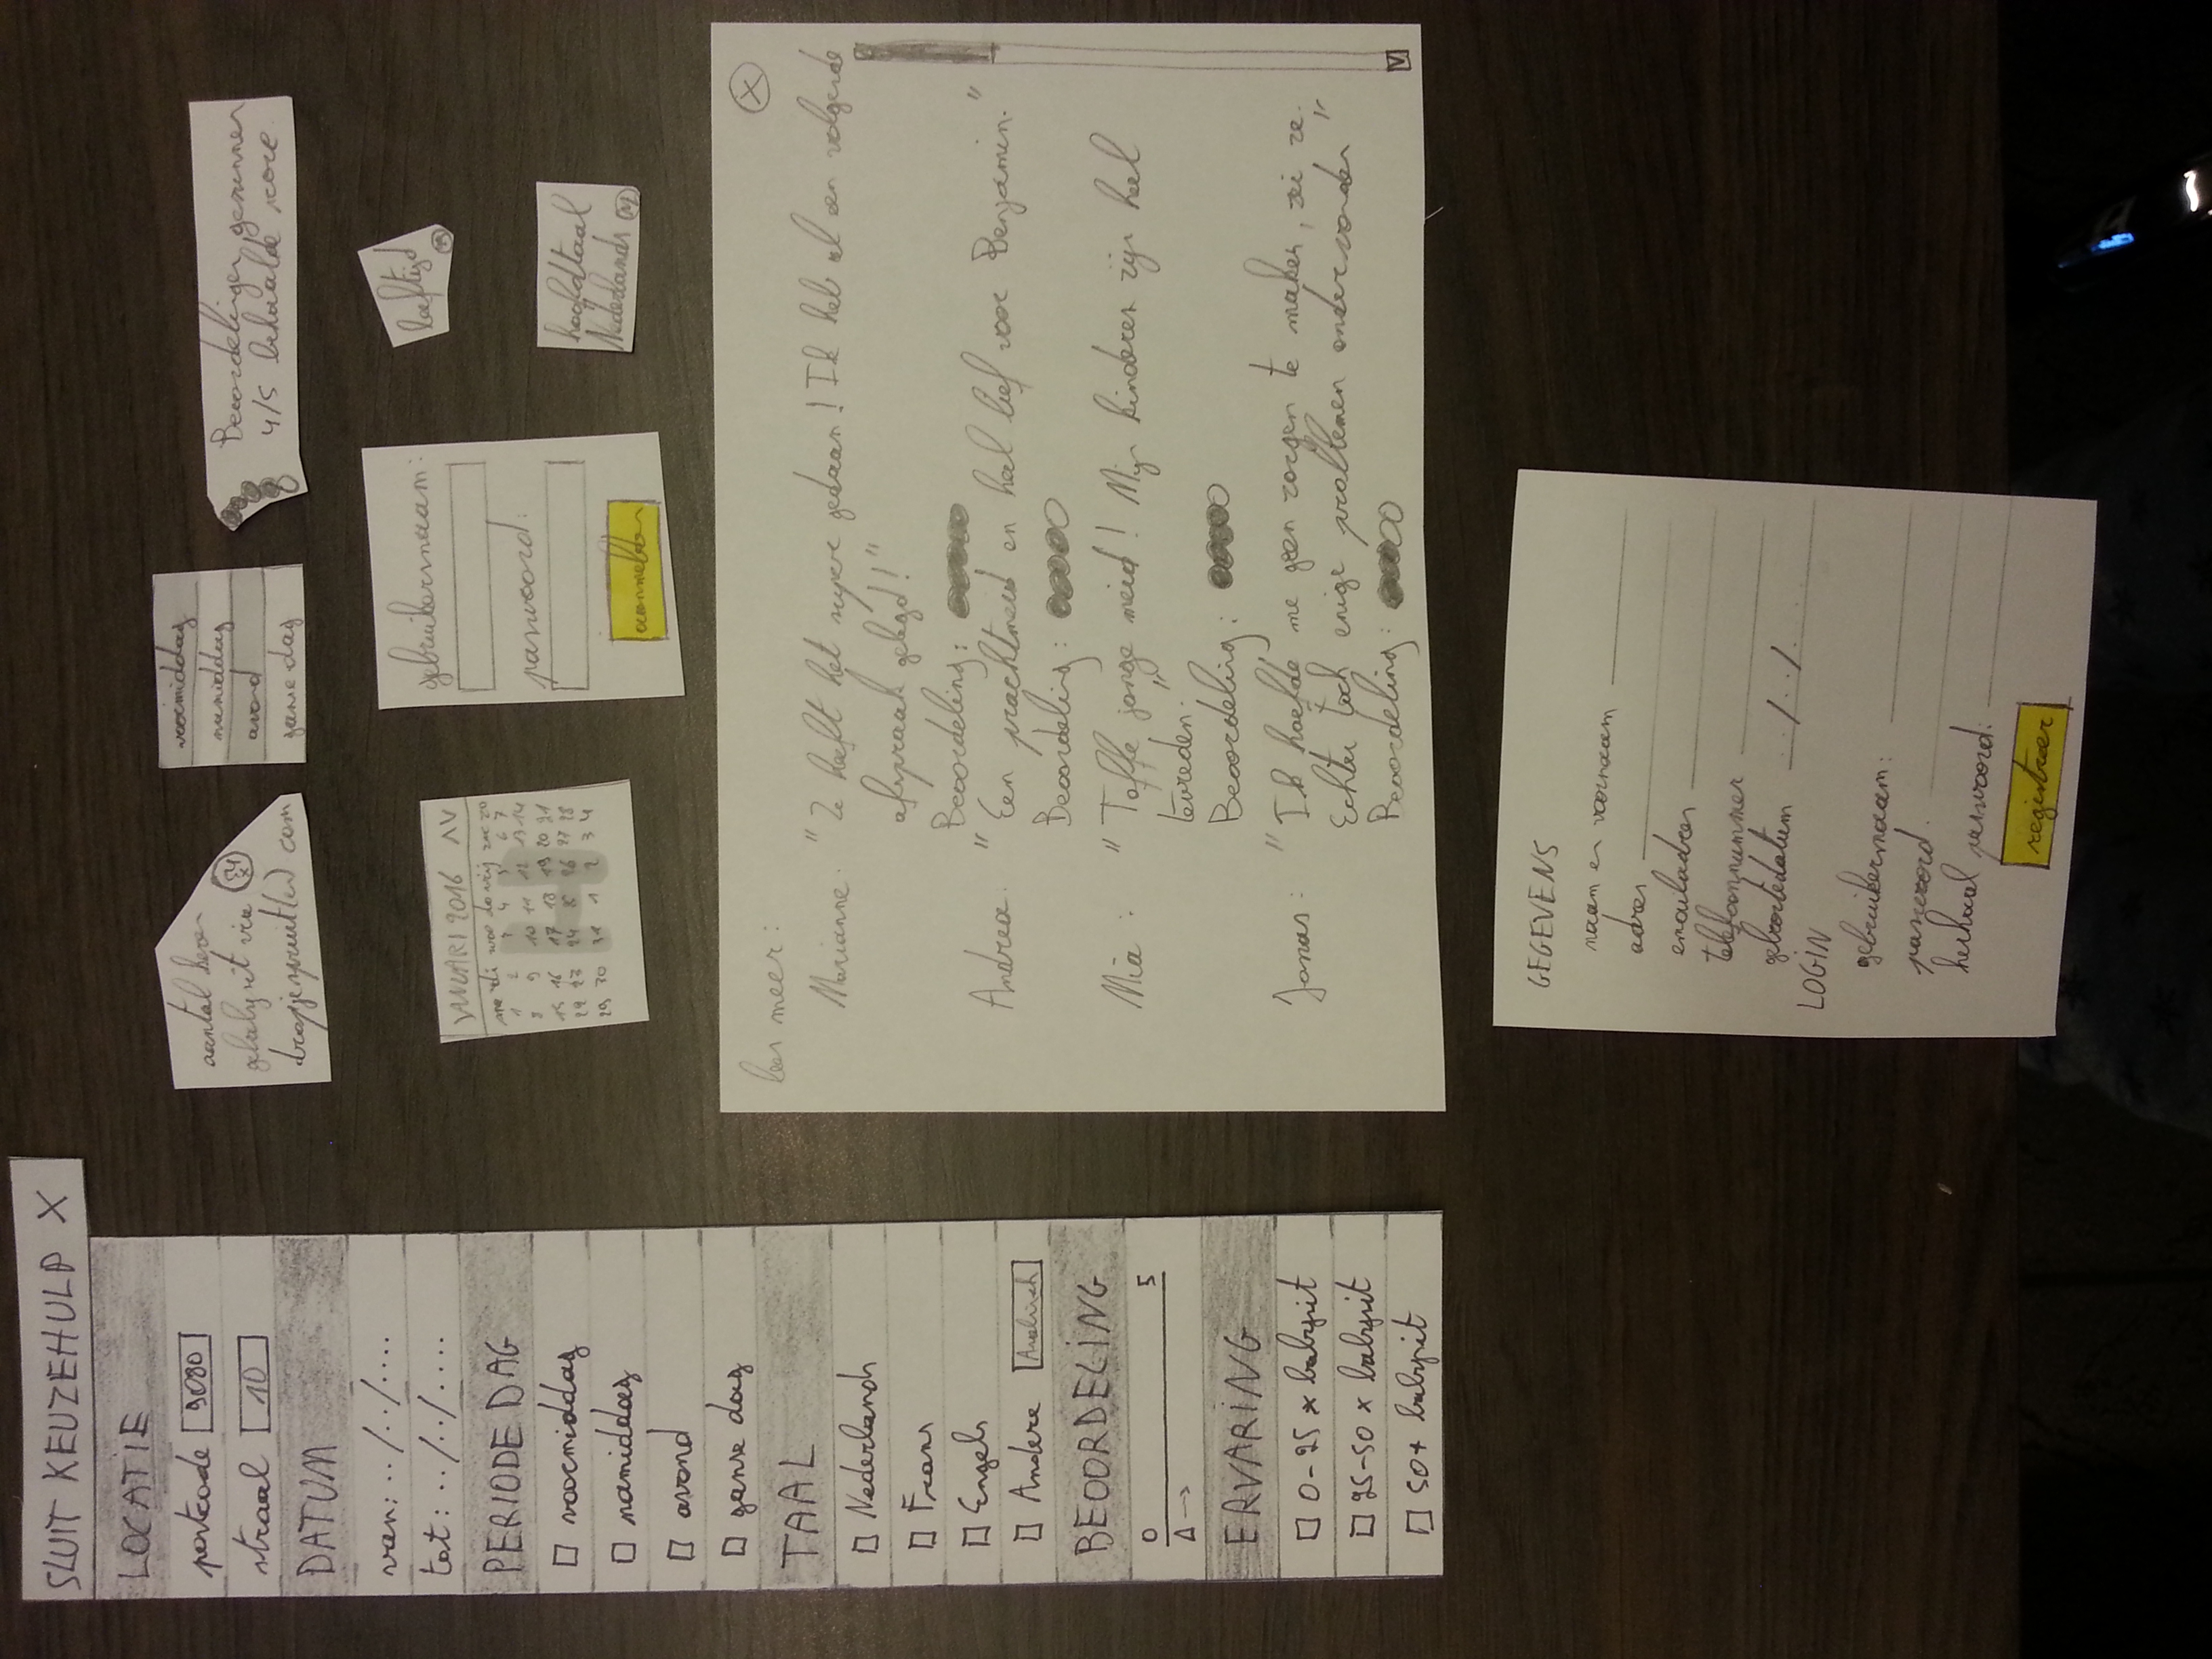 SLUIT KEUZEHULP X
LOCATIE
postcode 9080
straal 10
DATUM
van: ../../....
tot: ../../....
PERIODE DAG
voormiddag
namiddag
avond
ganse dag
TAAL
Nederlands
Frans
Engels
Andere Arabisch
BEOORDELING
0 5
ERVARING
0-25 x babysit
25-50 x babysit
50+ babysit
aantal keren
gebabysit via
dropjespruitled com
voormiddag
namiddag
avond
ganse dag
Beoordelingen
4/5 behaalde score
JANUARI 2016
ma di woe do vrij za zo
1 2 3 4 5 6 7
8 9 10 11 12 13 14
15 16 17 18 19 20 21
22 23 24 25 26 27 28
29 30 31 1 2 3 4
gebruikersnaam:
paswoord:
aanmelden
leeftijd
hoofdtaal
Nederlands
lees meer: X
Marianne: "Ze heeft het super gedaan! Ik heb al een volgende
afspraak gelegd!"
Beoordeling:
Andrea: "Een prachtmeid en heel lief voor Benjamin."
Beoordeling:
Mia: "Toffe jonge meid! Mijn kinderen zijn heel
tevreden."
Beoordeling:
Jonas: "Ik hoefde me geen zorgen te maken, zei ze.
Echter toch enige problemen ondervonden"
Beoordeling:
V
GEGEVENS
naam en voornaam
adres
emailadres
telefoonnummer
geboortedatum ../../....
LOGIN
gebruikersnaam:
paswoord:
herhaal paswoord:
registreer